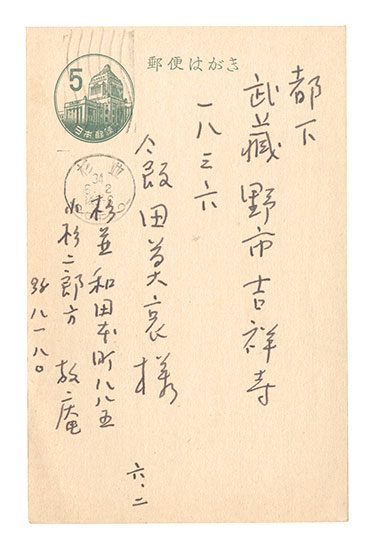 郵便はがき
5
日本郵便
都下
武蔵野市吉祥寺
一八三六
飯田善哀様
杉並和田本町八八五
小杉二郎方 放庵
六、二
杉並
34